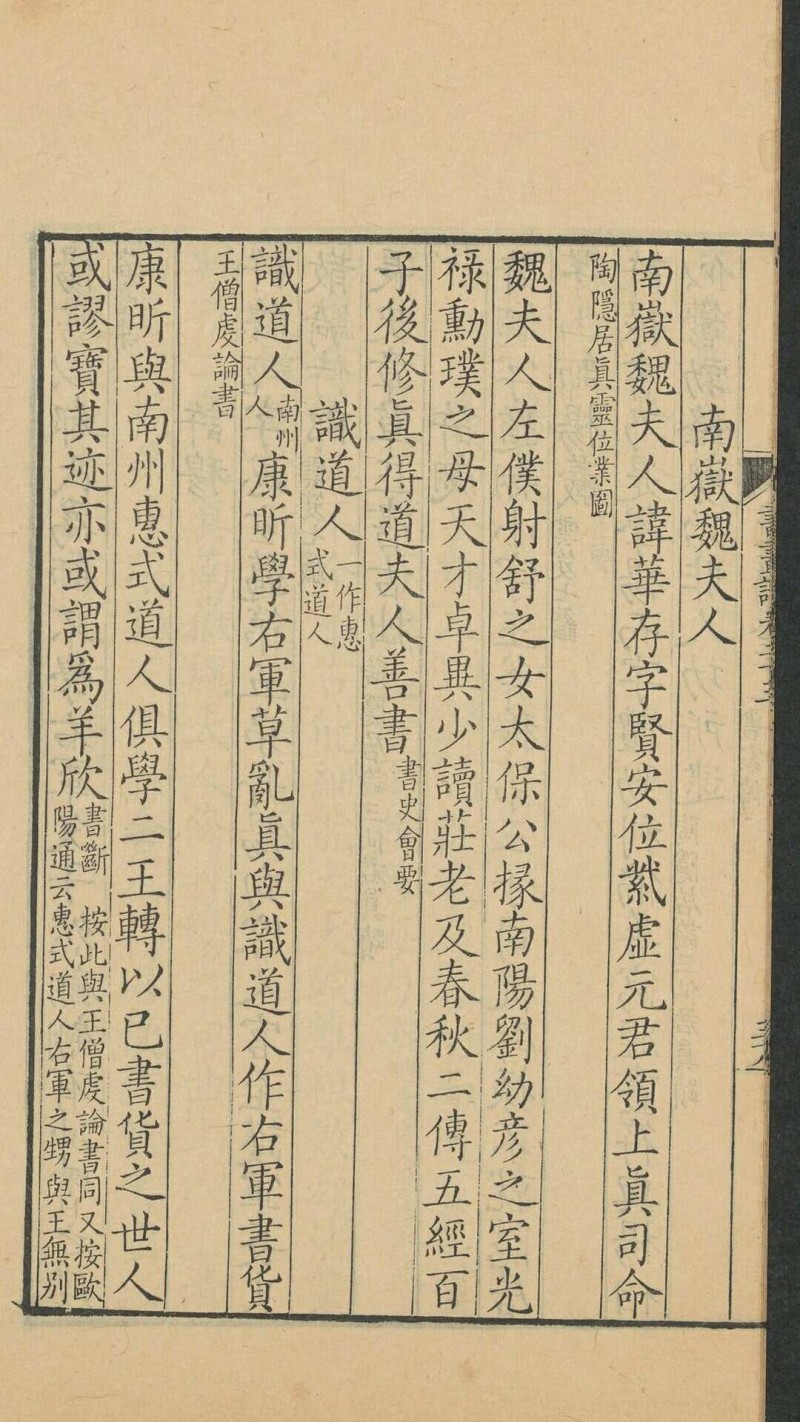 南嶽魏夫人
南嶽魏夫人諱華存字賢安位紫虛元君領上眞司命
陶隱居眞靈位業圖
魏夫人左僕射舒之女太保公掾南陽劉幼彥之室光
祿勳璞之母天才卓異少讀莊老及春秋二傳五經百
子後修眞得道夫人善書書史會要
識道人一作惠式道人
識道人南州人康昕學右軍草亂眞與識道人作右軍書貨
王僧虔論書
康昕與南州惠式道人俱學二王轉以己書貨之世人
或謬寶其迹亦或謂爲羊欣書斷 按此與王僧虔論書同又按歐陽通云惠式道人右軍之甥與王無別